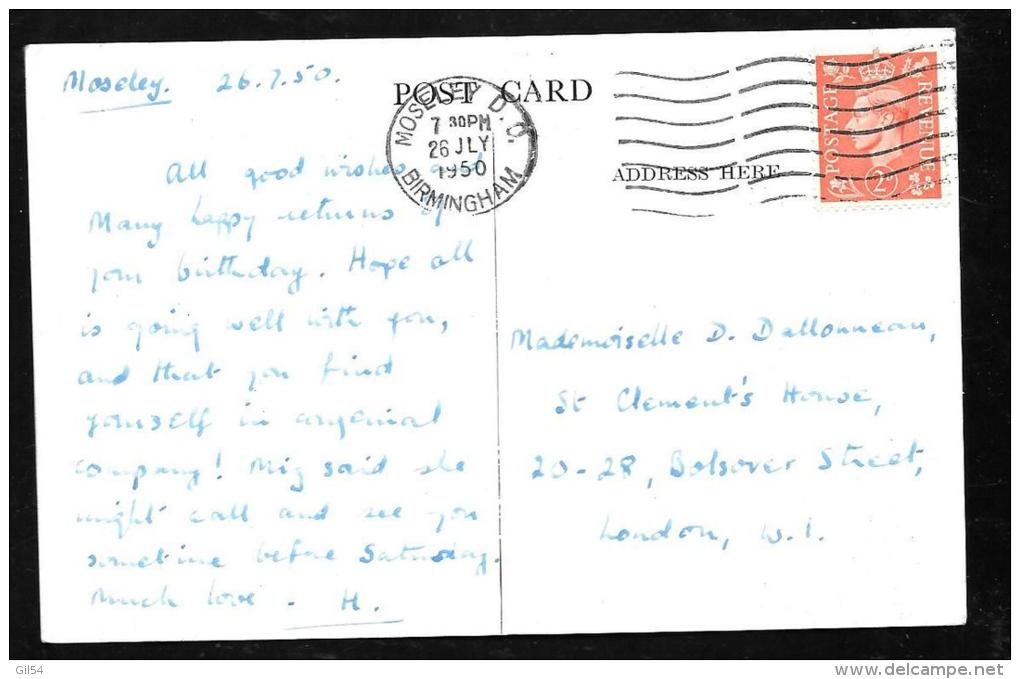 Moseley. 26.7.50.
POST CARD
MOSELEY D.O.
7 30PM
26 JLY
1950
BIRMINGHAM
POSTAGE REVENUE
2D
ADDRESS HERE
All good wishes and
Many happy returns of
your birthday. Hope all
is going well with you,
and that you find
yourself in congenial
company! Mig said she
might call and see you
sometime before Saturday.
Much love - H.
Mademoiselle D. Dallonneau,
St Clement's House,
20-28, Bolsover Street,
London, W.1.
Gil54
www.delcampe.net